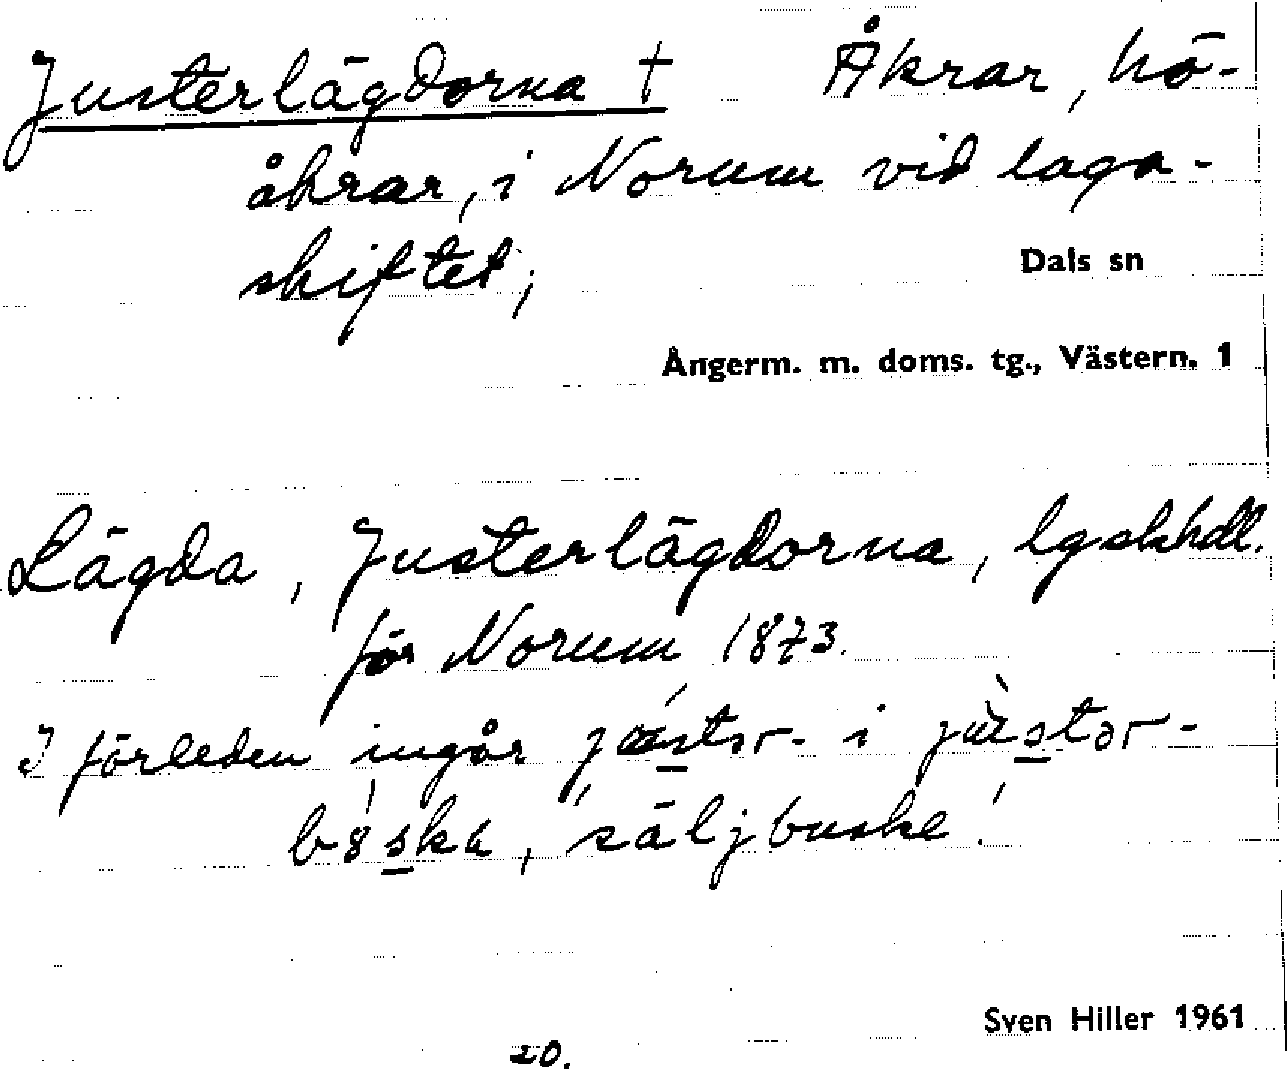 Justerlägdorna † Åkrar, hö-
åkrar, i Norum vid laga-
skiftet;
Dals sn
Ångerm. m. doms. tg., Västern. 1
Lägda, Justerlägdorna, lgskhdl.
för Norum 1873.
I förleden ingår i
, 'säljbuske'.
Sven Hiller 1961
20.